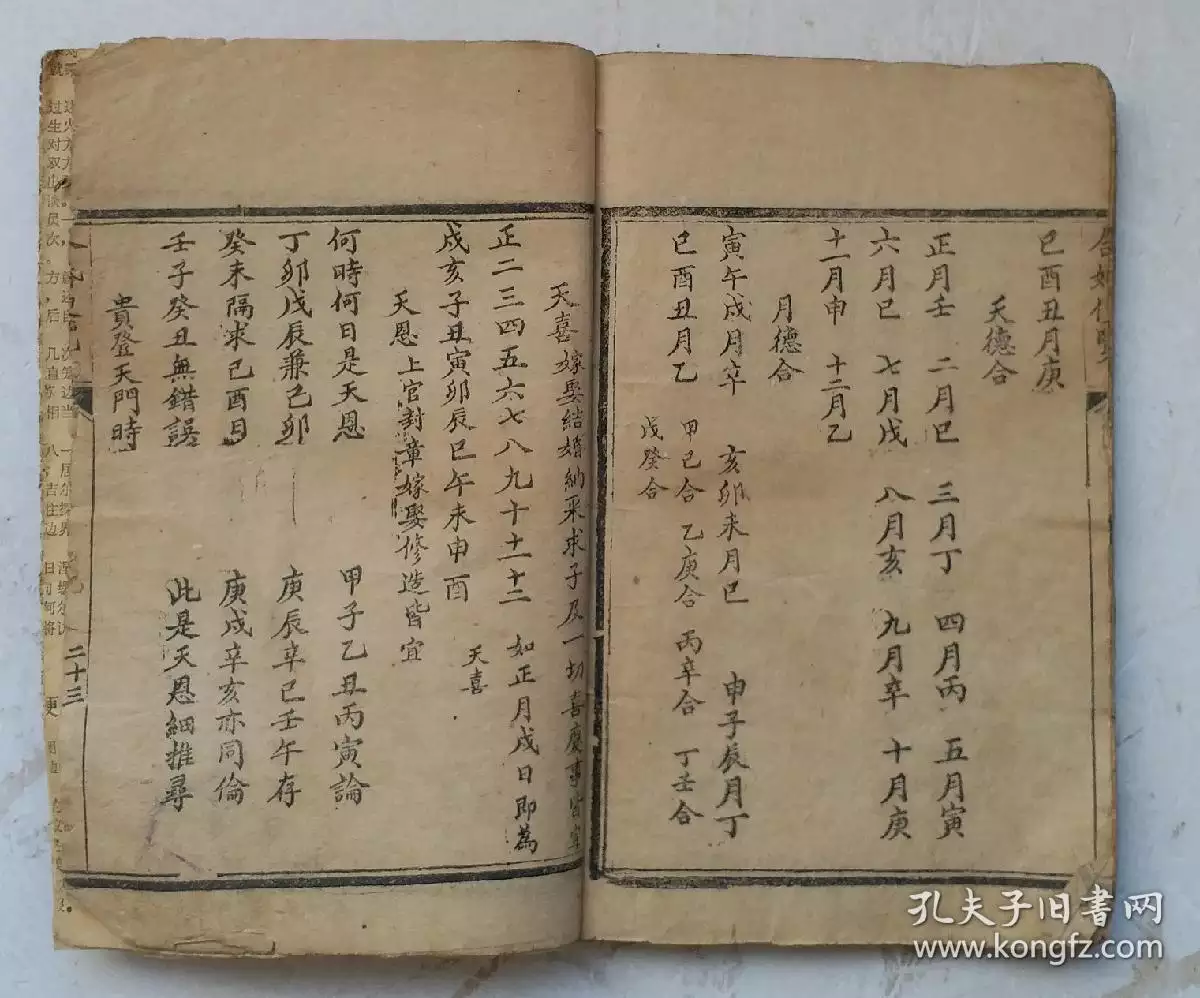 巳酉丑月庚
天德合
正月壬 二月巳 三月丁 四月丙 五月寅
六月巳 七月戊 八月亥 九月辛 十月庚
十一月申 十二月乙
月德合
寅午戌月辛 亥卯未月巳 申子辰月丁
巳酉丑月乙 甲己合 乙庚合 丙辛合 丁壬合
戊癸合
天喜 嫁娶結婚納采求子及一切喜慶事皆宜
正二三四五六七八九十十一十二 如正月戌日即為
戌亥子丑寅卯辰巳午未申酉 天喜
天恩 上官封章嫁娶修造皆宜
何時何日是天恩 甲子乙丑丙寅論
丁卯戊辰兼己卯 庚辰辛巳壬午存
癸未隔求己酉日 庚戌辛亥亦同倫
壬子癸丑無錯誤 此是天恩細推尋
貴登天門時
二十三
孔夫子旧书网
www.kongfz.com